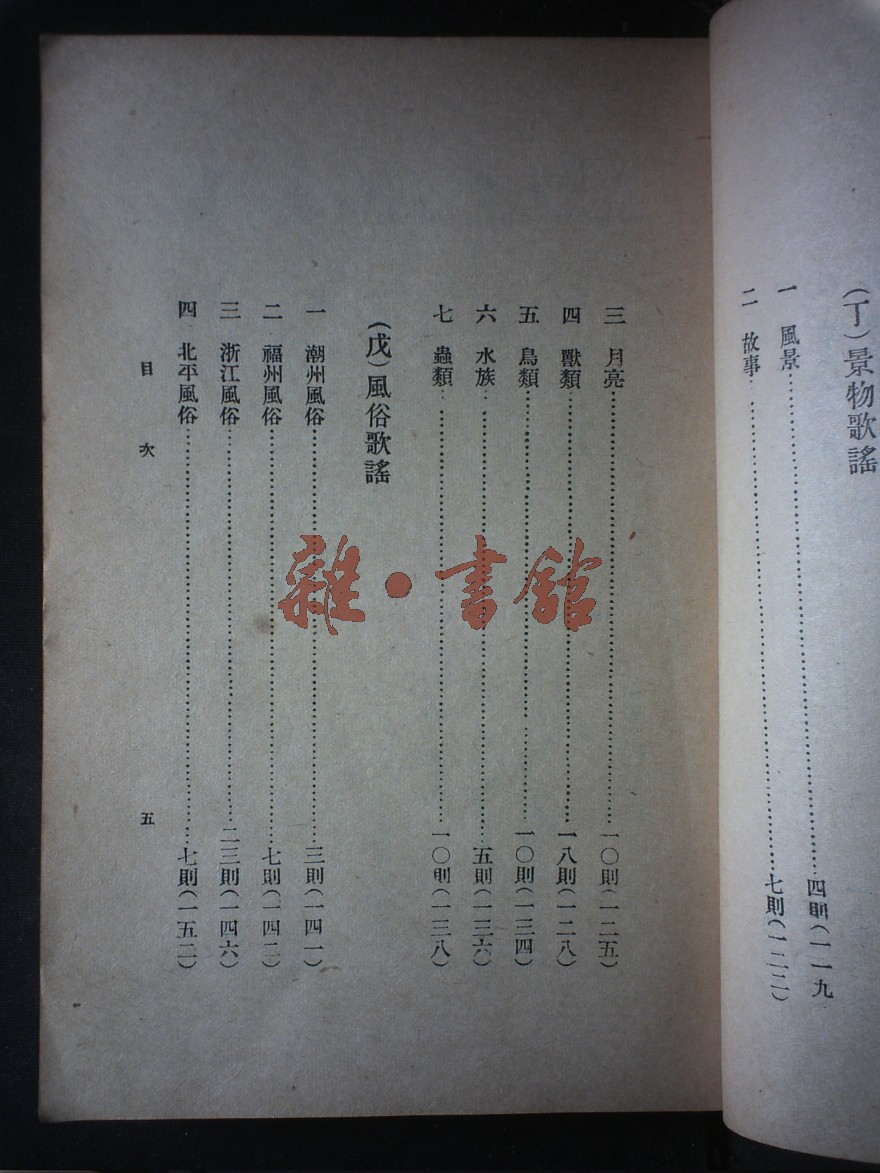 (丁)景物歌謠
一 風景……四則(一一九
二 故事……七則(一二二)
三 月亮……一〇則(一二五)
四 獸類……一八則(一二八)
五 鳥類……一〇則(一三四)
六 水族……五則(一三六)
七 蟲類……一〇則(一三八)
(戊)風俗歌謠
一 潮州風俗……三則(一四一)
二 福州風俗……七則(一四二)
三 浙江風俗……二三則(一四六)
四 北平風俗……七則(一五二)
目次
五
雜·書館